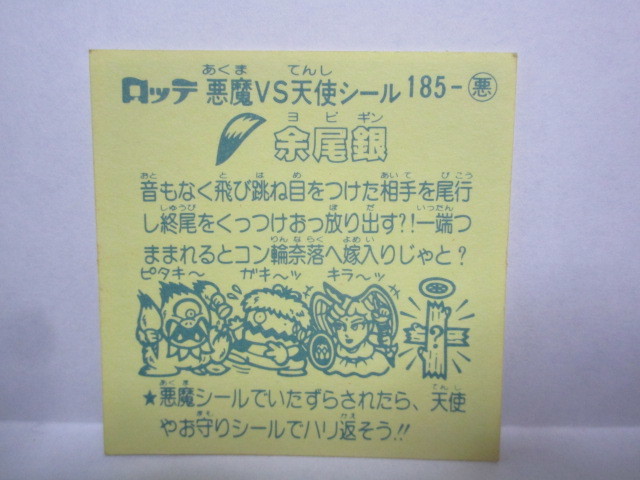 ロッテ 悪魔VS天使シール 185-悪
余尾銀
音もなく飛び跳ね目をつけた相手を尾行
し終尾をくっつけおっ放り出す?!一端つ
ままれるとコン輪奈落へ嫁入りじゃと?
ピタキ〜 ガキ〜ッ キラ〜ッ
?
★悪魔シールでいたずらされたら、天使
やお守りシールでハリ返そう!!